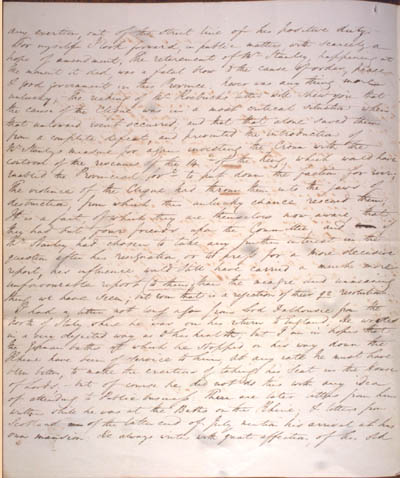 any exertion, out of the strict line of his positive duty.
For myself I look forward, in public matters with scarcely a
hope of amendment, the retirement of Mr Stanley, happening at
the moment it did, was a fatal blow to the cause of order, peace
& good government in this Province. Never was any thing more
unlucky, the reading of Mr letters will shew you that
the cause of the Clique was in a most critical situation when
that untoward event occurred, and that that alone saved them
from a complete defeat, and prevented the introduction of
Mr Stanley's measure for again investing the Crown with the
control of the revenues of the 14th of the King, which would have
enabled the Provincial Govt to put down the faction for ever;
The violence of the Clique has thrown them into the jaws of
destruction, from which this unlucky chance rescued them,
It is a fact of which they are themselves now aware, that
they had but four friends upon the Committee and
Mr Stanley had chosen to take any further interest in the
question after his resignation, or to press for more decisive
report, his influence would still have carried a much more
unfavourable report to them, than the meagre and unmeaning
thing we have seen; but even that is a rejection of their 92 resolutions
I had a letter not long ago from Lord Dalhousie from the
north of Italy where he was on his return to England. He
in a very dejected way as to his health, but I am in hopes that
the German baths at which he stopped on his way down the
Rhine have been of service to him, at any rate he must have
been better, to make the exertion of taking his seat in the House
of Lords - but of course he did not do this with any idea
of attending to Public business. There are later letters from him
written while he was at the Baths on the Rhine; & letters from
Scotland of the latter end of July mention his arrival at his
own mansion. He always writes with great affection, of his old